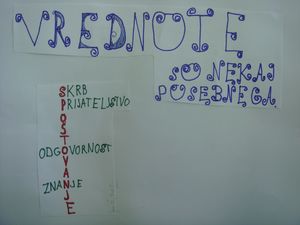 VREDNOTE
SO NEKAJ
POSEBNEGA.
SKRB
PRIJATELJSTVO
O
Š
T
ODGOVORNOST
V
A
ZNANJE
J
E